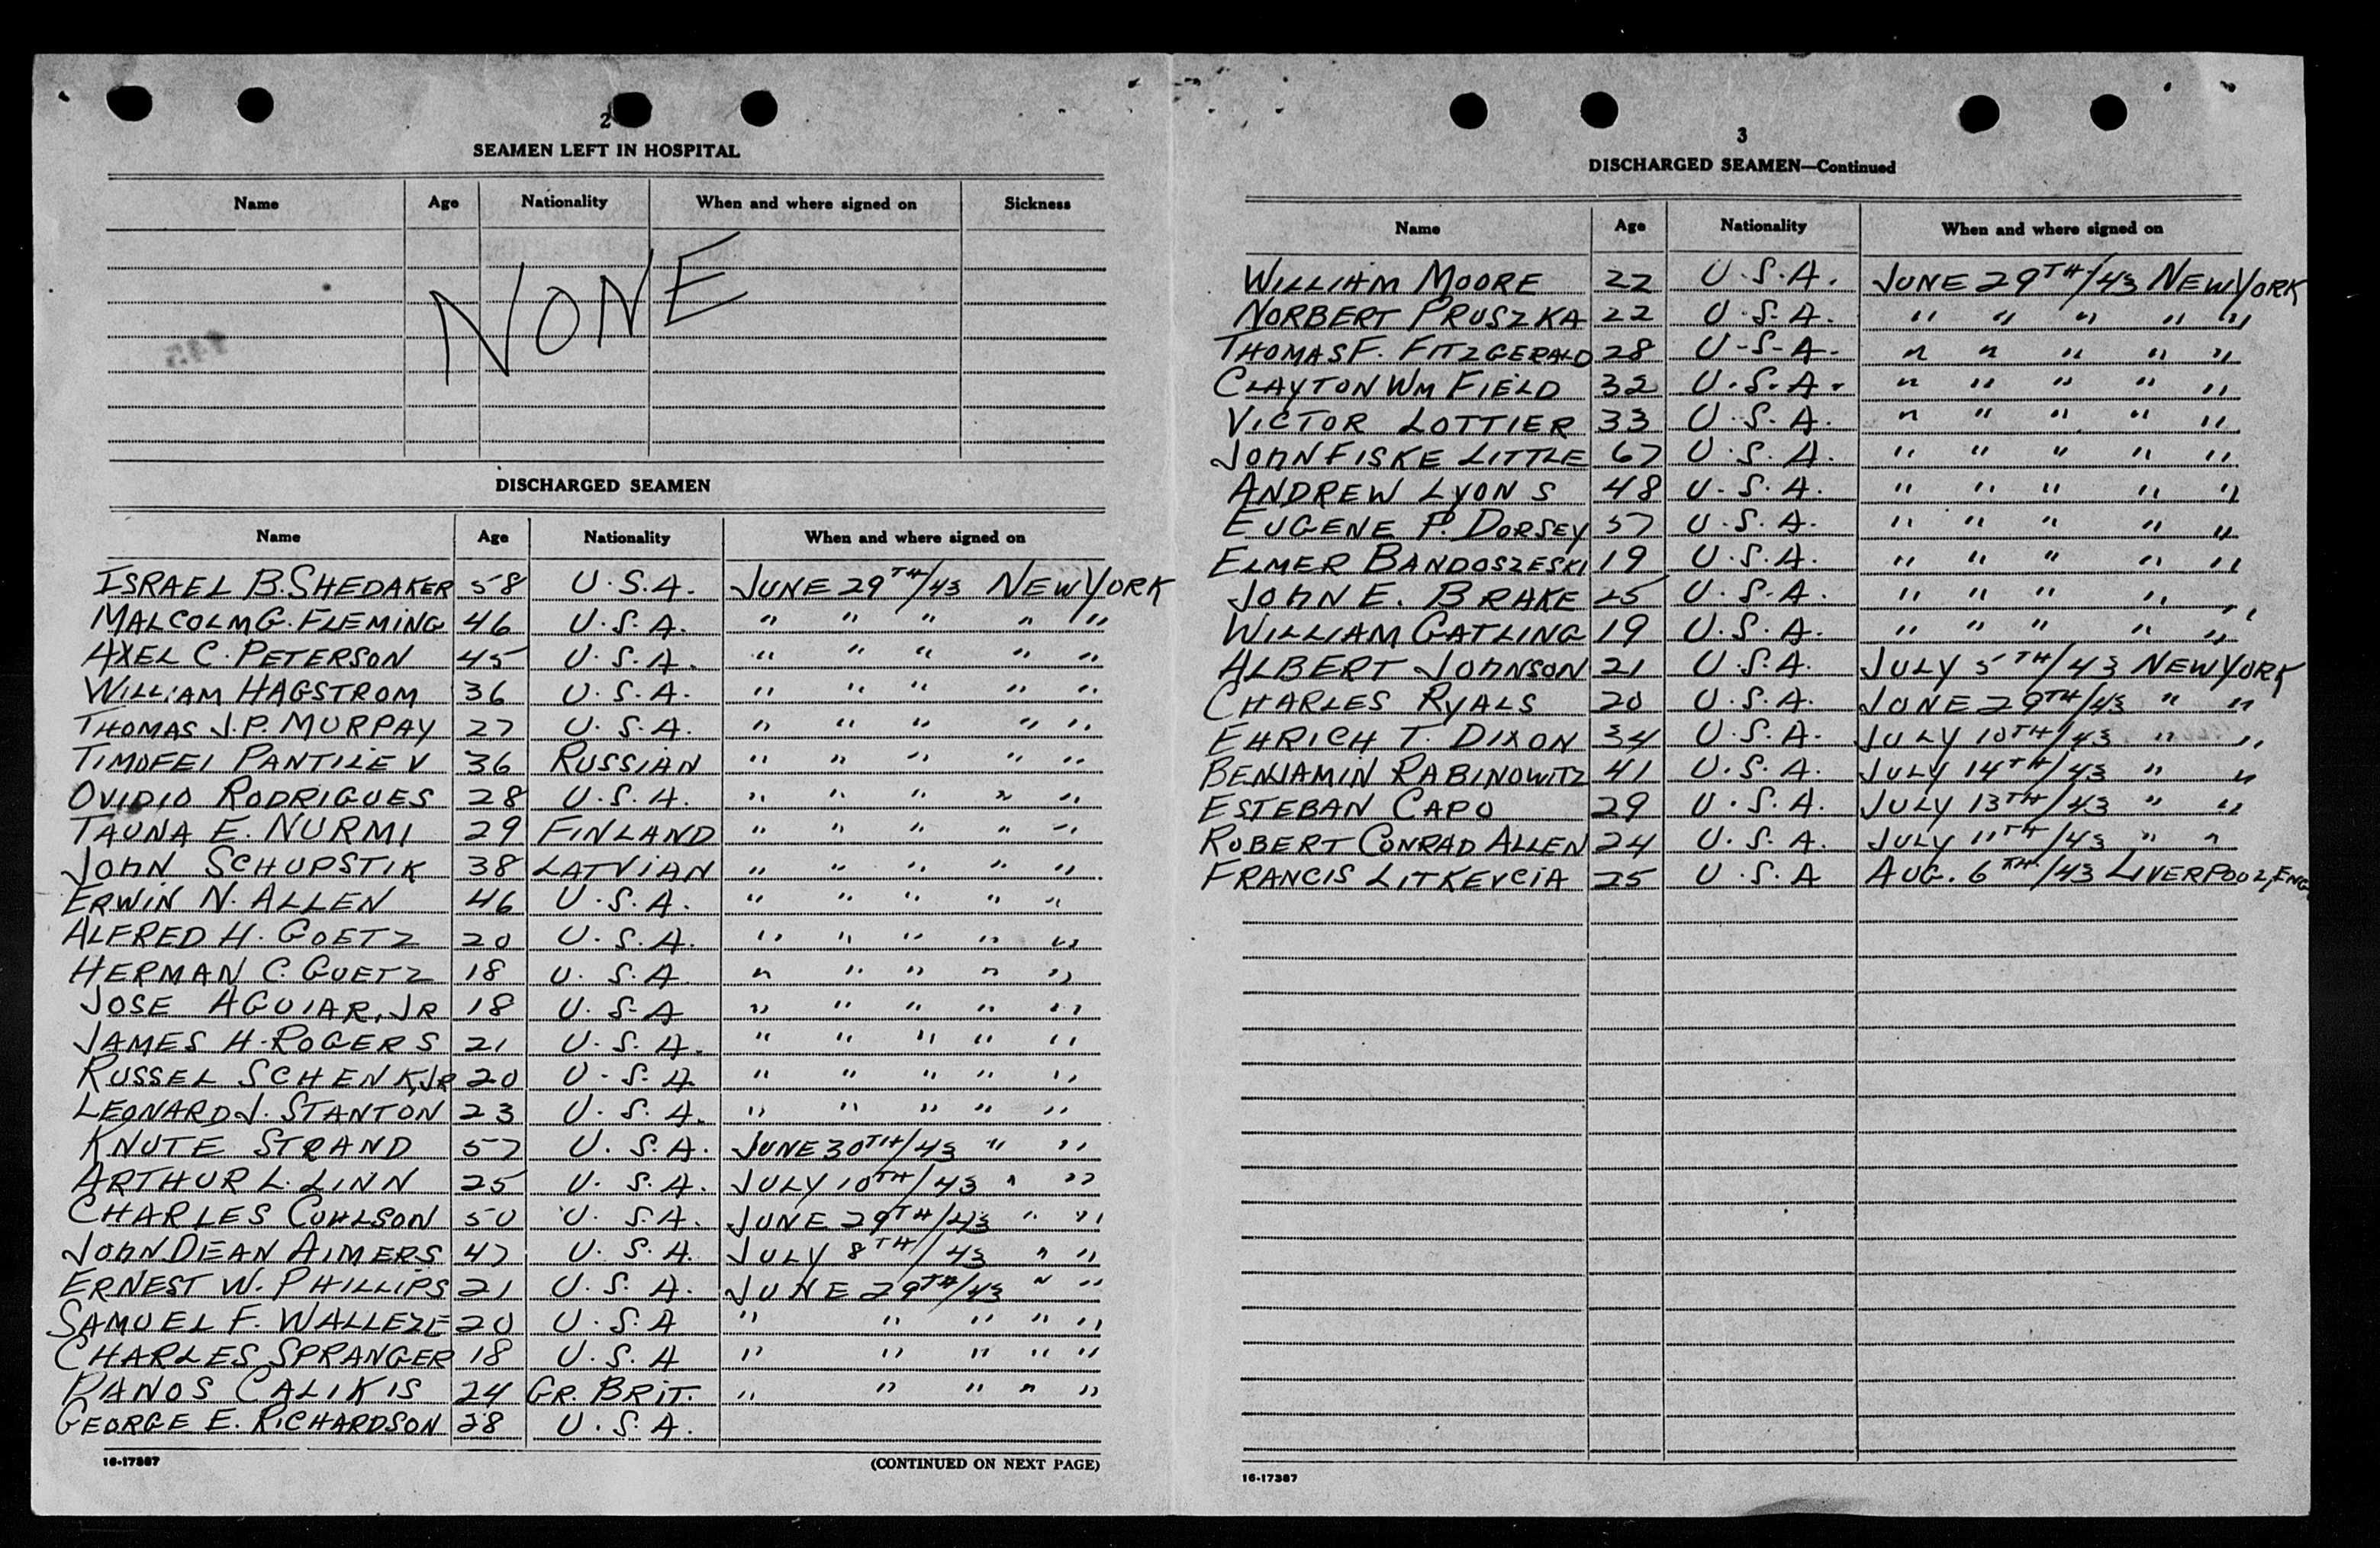 2
SEAMEN LEFT IN HOSPITAL
Name Age Nationality When and where signed on Sickness
NONE
DISCHARGED SEAMEN
Name Age Nationality When and where signed on
ISRAEL B. SHEDAKER 58 U.S.A. JUNE 29TH/43 NEW YORK
MALCOLM G. FLEMING 46 U.S.A. " " " " "
AXEL C. PETERSON 45 U.S.A. " " " " "
WILLIAM HAGSTROM 36 U.S.A. " " " " "
THOMAS J.P. MURPAY 27 U.S.A. " " " " "
TIMOFEI PANTILEV 36 RUSSIAN " " " " "
OVIDIO RODRIGUES 28 U.S.A. " " " " "
TAUNA E. NURMI 29 FINLAND " " " " "
JOHN SCHUPSTIK 38 LATVIAN " " " " "
ERWIN N. ALLEN 46 U.S.A. " " " " "
ALFRED H. GOETZ 20 U.S.A. " " " " "
HERMAN C. GOETZ 18 U.S.A " " " " "
JOSE AGUIAR, JR 18 U.S.A " " " " "
JAMES H. ROGERS 21 U.S.A. " " " " "
RUSSEL SCHENK, JR 20 U.S.A. " " " " "
LEONARD J. STANTON 23 U.S.A. " " " " "
KNUTE STRAND 57 U.S.A. JUNE 30TH/43 " "
ARTHUR L. LINN 25 U.S.A. JULY 10TH/43 " "
CHARLES COHLSON 50 U.S.A. JUNE 29TH/43 " "
JOHN DEAN AIMERS 47 U.S.A. JULY 8TH/43 " "
ERNEST W. PHILLIPS 21 U.S.A. JUNE 29TH/43 " "
SAMUEL F. WALLEZE 20 U.S.A " " " " "
CHARLES SPRANGER 18 U.S.A " " " " "
PANOS CALIKIS 24 GR. BRIT. " " " " "
GEORGE E. RICHARDSON 28 U.S.A.
16-17387 (CONTINUED ON NEXT PAGE)
3
DISCHARGED SEAMEN—Continued
Name Age Nationality When and where signed on
WILLIAM MOORE 22 U.S.A. JUNE 29TH/43 NEW YORK
NORBERT PRUSZKA 22 U.S.A. " " " " "
THOMAS F. FITZGERALD 28 U-S-A- " " " " "
CLAYTON WM FIELD 32 U.S.A. " " " " "
VICTOR LOTTIER 33 U.S.A. " " " " "
JOHN FISKE LITTLE 67 U.S.A. " " " " "
ANDREW LYONS 48 U.S.A. " " " " "
EUGENE P. DORSEY 57 U.S.A. " " " " "
ELMER BANDOSZESKI 19 U.S.A. " " " " "
JOHN E. BRAKE 25 U.S.A. " " " " "
WILLIAM GATLING 19 U.S.A. " " " " "
ALBERT JOHNSON 21 U.S.A. JULY 5TH/43 NEW YORK
CHARLES RYALS 20 U.S.A. JUNE 29TH/43 " "
EHRICH T. DIXON 34 U.S.A. JULY 10TH/43 " "
BENJAMIN RABINOWITZ 41 U.S.A. JULY 14TH/43 " "
ESTEBAN CAPO 29 U.S.A. JULY 13TH/43 " "
ROBERT CONRAD ALLEN 24 U.S.A. JULY 11TH/43 " "
FRANCIS LITKEVCIA 25 U.S.A AUG. 6TH/43 LIVERPOOL, ENG
16-17387